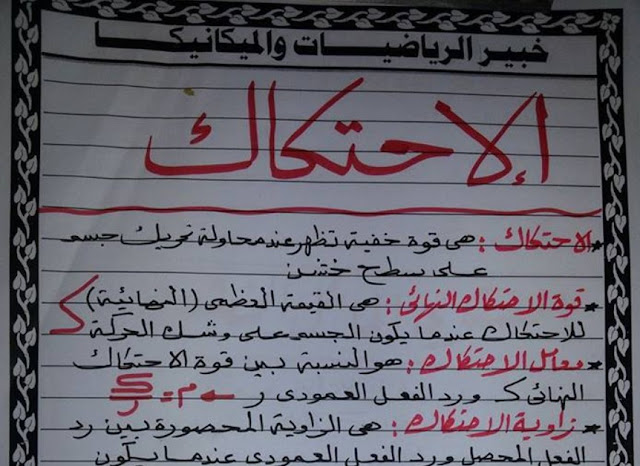 خبير الرياضيات والميكانيكا
الإحتكاك
* الاحتكاك : هي قوة خفية تظهر عند محاولة تحريك جسم
على سطح خشن
* قوة الاحتكاك النهائى : هى القيمة العظمى (النهائية)
للاحتكاك عندما يكون الجسم على وشك الحركة ك
* معامل الاحتكاك : هو النسبة بين قوة الاحتكاك
النهائى ك و رد الفعل العمودى ر ← م = ك/ر
* زاوية الاحتكاك : هى الزاوية المحصورة بين رد
الفعل المحصل ورد الفعل العمودى عندما يكون